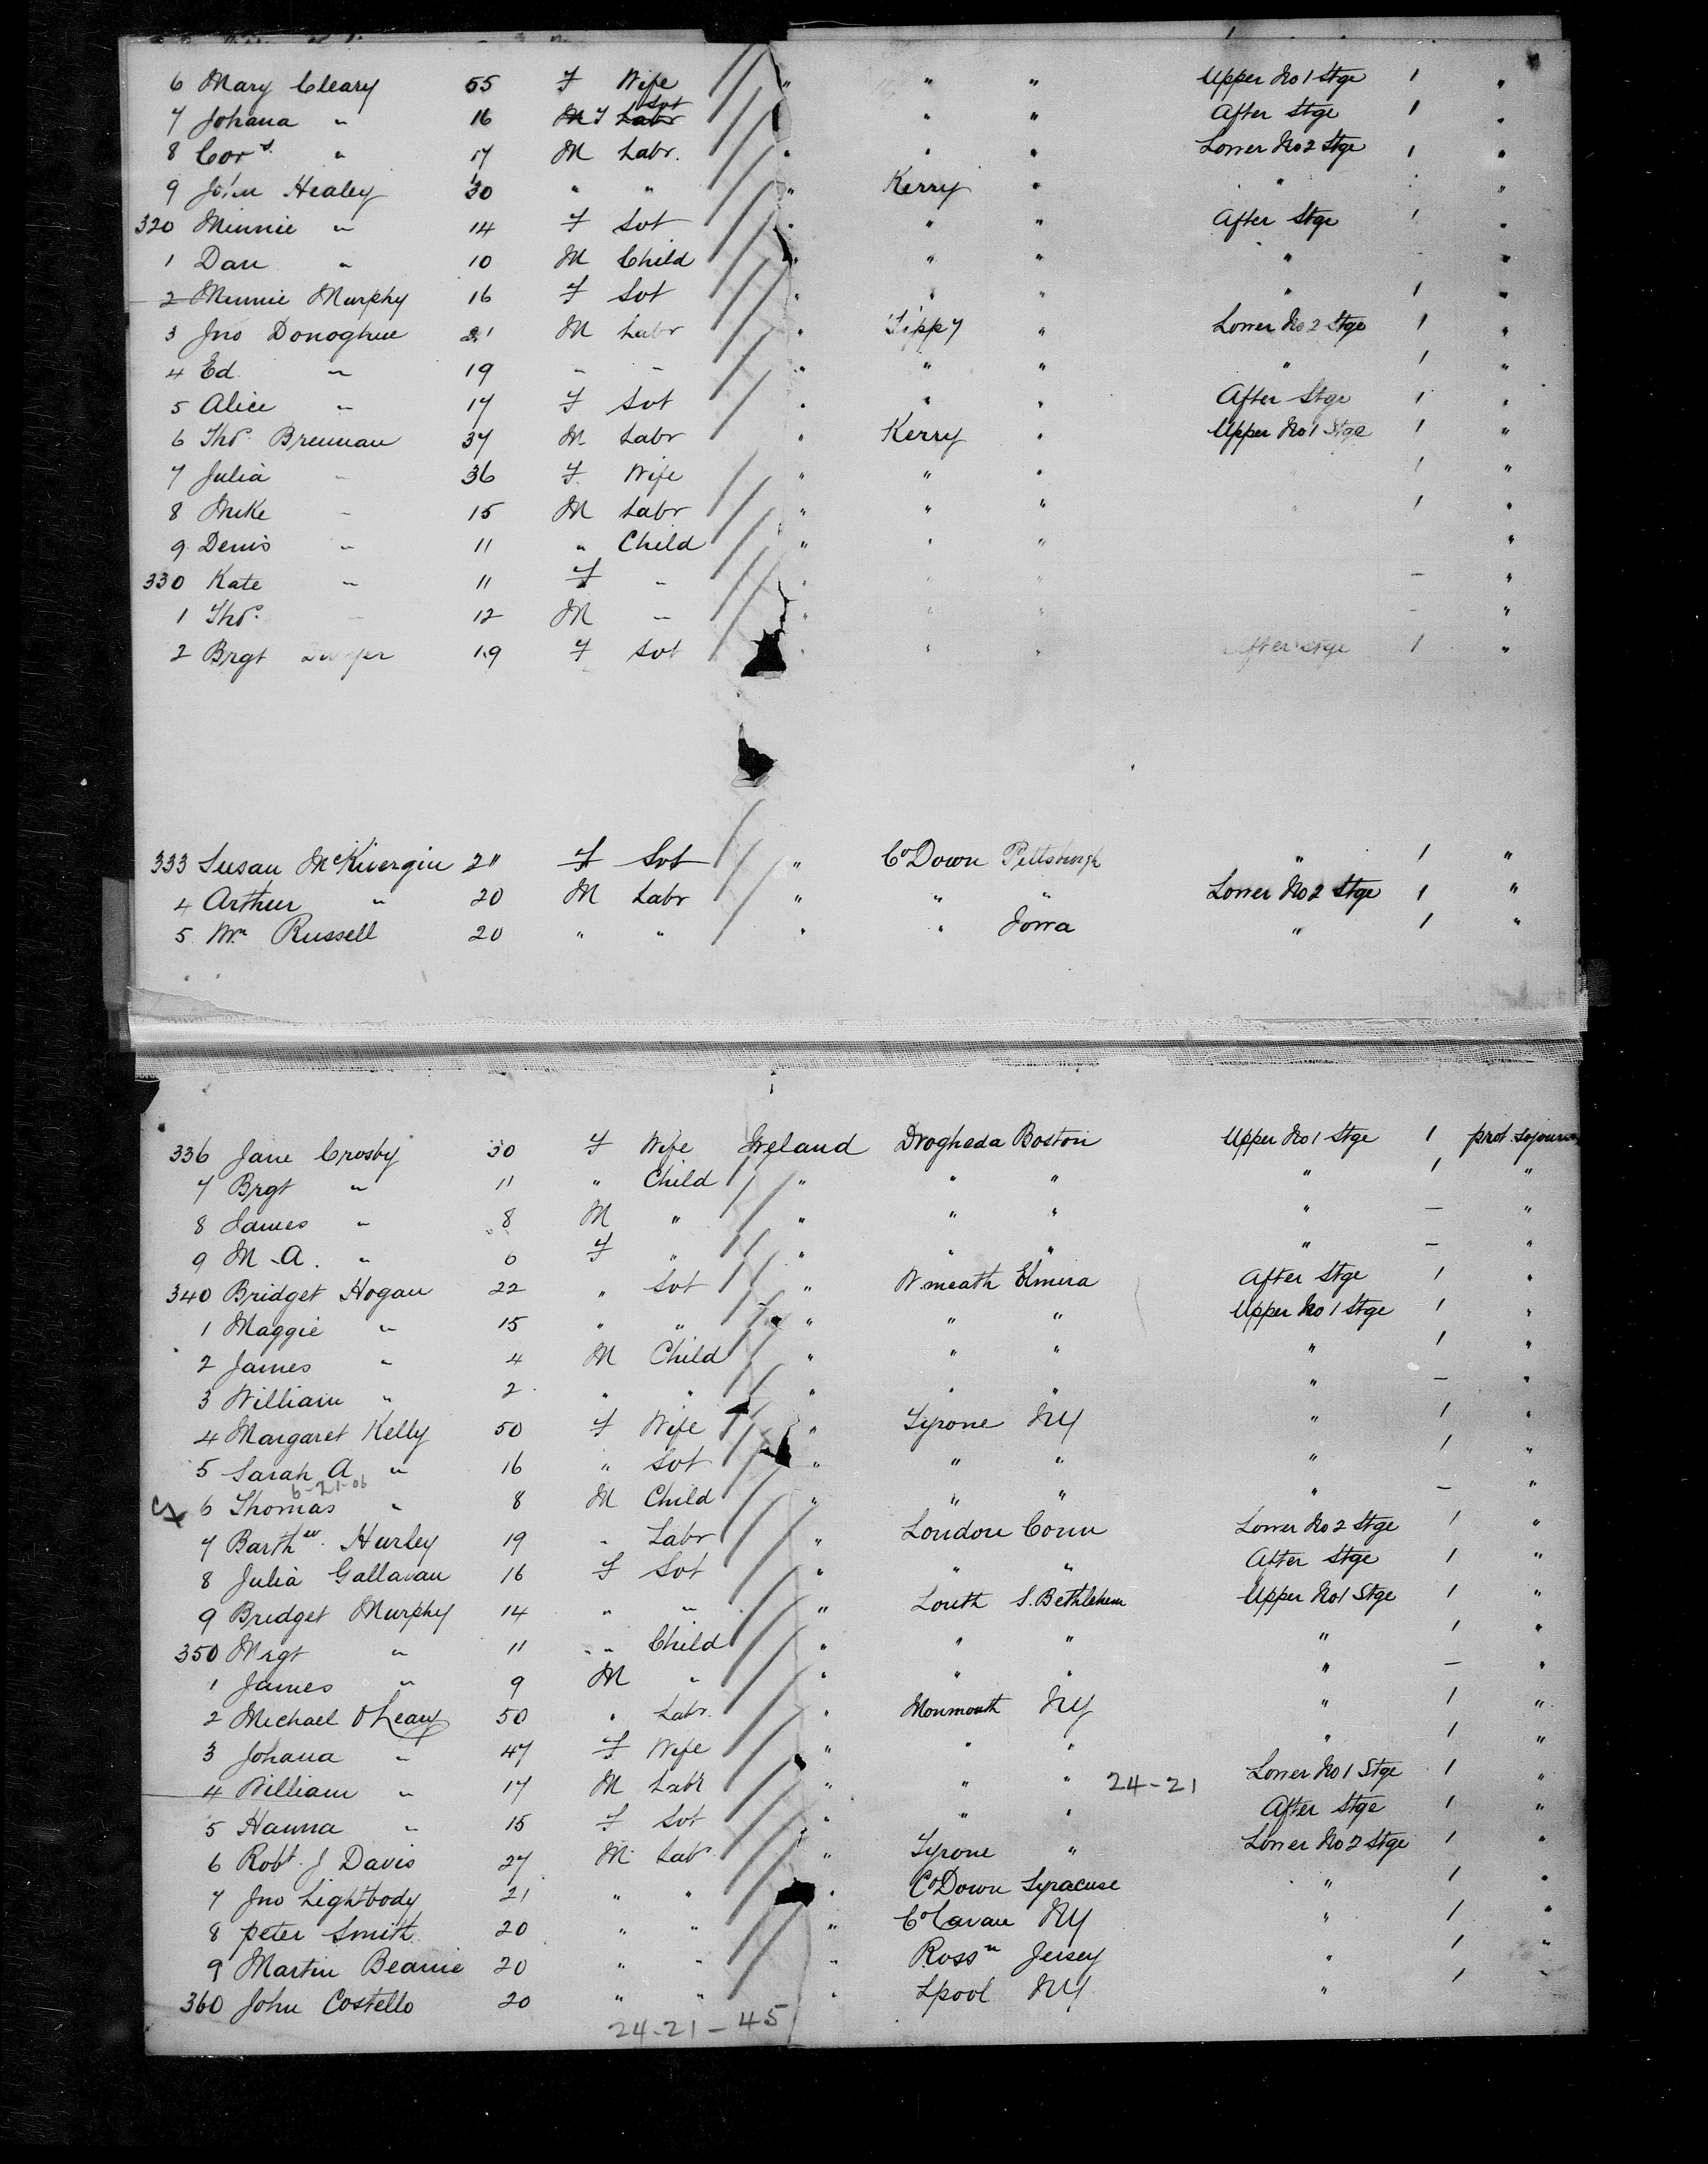 6 Mary Cleary 55 F Wife " " " Upper No 1 Stge 1 "
7 Johana " 16 M F Labr Svt " " After Stge 1 "
8 Cors. " 17 M Labr. " " " Lower No 2 Stge 1 "
9 John Healey 30 " " " Kerry " " "
320 Minnie " 14 F Svt " " " After Stge 1 "
1 Dan " 10 M Child " " " " - "
2 Minnie Murphy 16 F Svt " " " " 1 "
3 Jno Donoghue 21 M Labr " Tippy " Lower No 2 Stge 1 "
4 Ed " 19 " " " " " " 1 "
5 Alice " 17 F Svt " " " After Stge 1 "
6 Thos. Brennan 37 M Labr " Kerry " Upper No 1 Stge 1 "
7 Julia " 36 F. Wife " " " " 1 "
8 Mike " 15 M Labr " " " " 1 "
9 Denis " 11 " Child " " " "
330 Kate " 11 F " " " " - "
1 Thos. " 12 M " " " " - "
2 Brgt 19 F Svt " " " After Stge 1 "
333 Susan McKivergin F Svt " Co Down Pittsburgh " 1 "
4 Arthur " 20 M Labr " " " Lower No 2 Stge 1 "
5 Wm Russell 20 " " " " Iowa " 1 "
336 Jane Crosby 30 F Wife Ireland Drogheda Boston Upper No 1 Stge 1 prot. sojourn
7 Brgt " 11 " Child " " " " 1 "
8 James " 8 M " " " " " - "
9 M. A. " 6 F " " " " " - "
340 Bridget Hogan 22 " Svt " W.meath Elmira After Stge 1 "
1 Maggie " 15 " " " " " Upper No 1 Stge 1 "
2 James " 4 M Child " " " " 1 "
3 William " 2 " " " " " " - "
4 Margaret Kelly 50 F Wife " Tyrone NY " 1 "
5 Sarah A " 16 " Svt " " " " 1 "
6-21-06
X 6 Thomas " 8 M Child " " " " - "
7 Barthew. Hurley 19 " Labr " London Conn Lower No 2 Stge 1 "
8 Julia Gallavan 16 F Svt " " " After Stge 1 "
9 Bridget Murphy 14 " " " Louth S. Bethlehem Upper No 1 Stge 1 "
350 Mrgt " 11 " Child " " " " 1 "
1 James " 9 M " " " " " - "
2 Michael O'Leary 50 " Labr. " Monmouth NY " 1 "
3 Johana " 47 F Wife " " " " 1 "
4 William " 17 M Labr " " " 24-21 Lower No 1 Stge 1 "
5 Hanna " 15 F Svt " " " After Stge 1 "
6 Robt. J Davis 27 M Labr " Tyrone " Lower No 2 Stge 1 "
7 Jno Lightbody 21 " " " Co Down Syracuse " 1 "
8 peter Smith 20 " " " Co Cavan NY " 1 "
9 Martin Beanie 20 " " " Rossn Jersey " 1 "
360 John Costello 20 " " " Lpool NY " 1 "
24-21-45